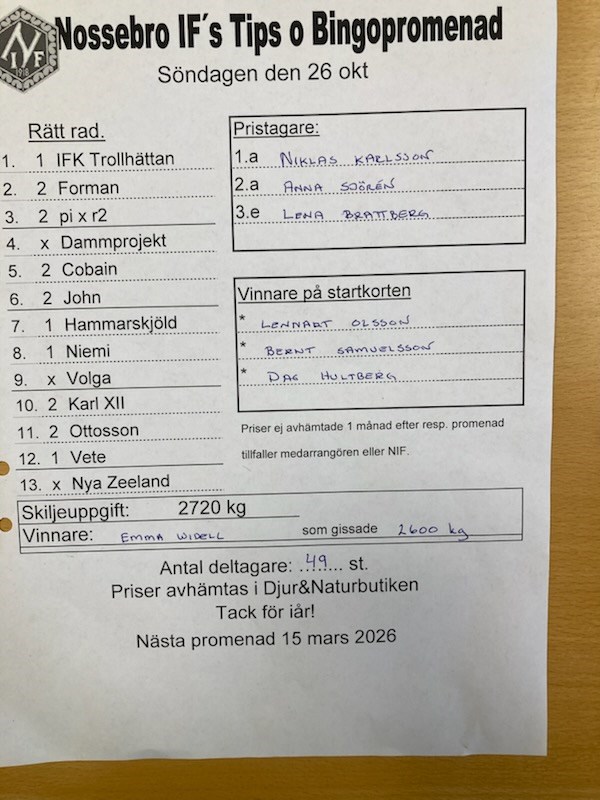 Nossebro IF´s Tips o Bingopromenad
NIF
1918
Söndagen den 26 okt
Rätt rad.
1. 1 IFK Trollhättan
2. 2 Forman
3. 2 pi x r2
4. x Dammprojekt
5. 2 Cobain
6. 2 John
7. 1 Hammarskjöld
8. 1 Niemi
9. x Volga
10. 2 Karl XII
11. 2 Ottosson
12. 1 Vete
13. x Nya Zeeland
Pristagare:
1.a NIKLAS KARLSSON
2.a ANNA SJÖRÉN
3.e LENA BRATTBERG
Vinnare på startkorten
* LENNART OLSSON
* BERNT SAMUELSSON
* DAG HULTBERG
Priser ej avhämtade 1 månad efter resp. promenad
tillfaller medarrangören eller NIF.
Skiljeuppgift: 2720 kg
Vinnare: EMMA WIDELL som gissade 2600 kg
Antal deltagare: ..49... st.
Priser avhämtas i Djur&Naturbutiken
Tack för iår!
Nästa promenad 15 mars 2026